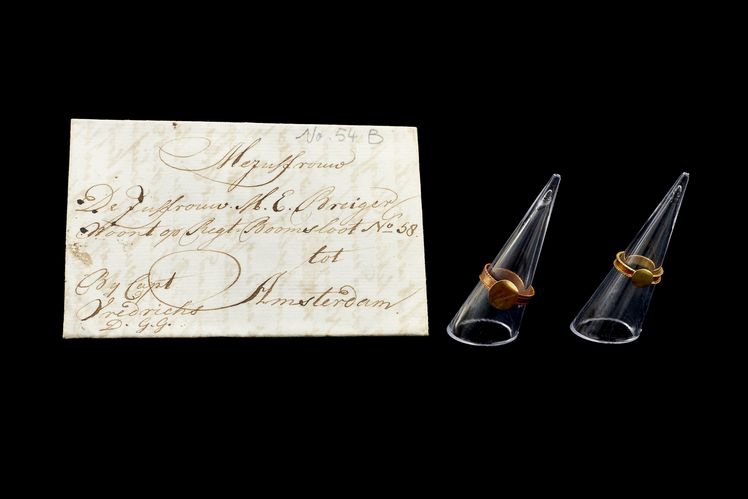 No. 54 B
Mejuffrouw
De Juffrouw M. E. Breiger
Woont op Regt Boomsloot No 58.
tot
Amsterdam
By Capt
Fredrichs
D. G. G.